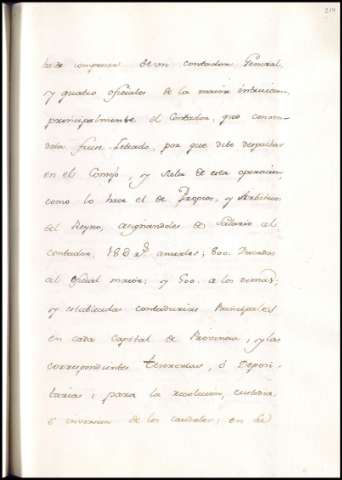 214
ha de componerse de un contador General
y quatro oficiales de la maior instruccion,
principalmente el Contador, que conven-
dria fuese Letrado, por que debe despachar
en el Consejo, y Sala de esta operacion,
como lo hace el de Propios, y Arbitrios
del Reyno, asignandoles de Salario al
contador, 180 rs anuales; 800 Ducados
al oficial maior; y 500 a los demas;
y establecidas contadurias Principales
en cada Capital de Provincia, y las
correspondientes Tesorerias, ó Deposi-
tarias, para la recoleccion, custodia,
é inversion de los caudales; en